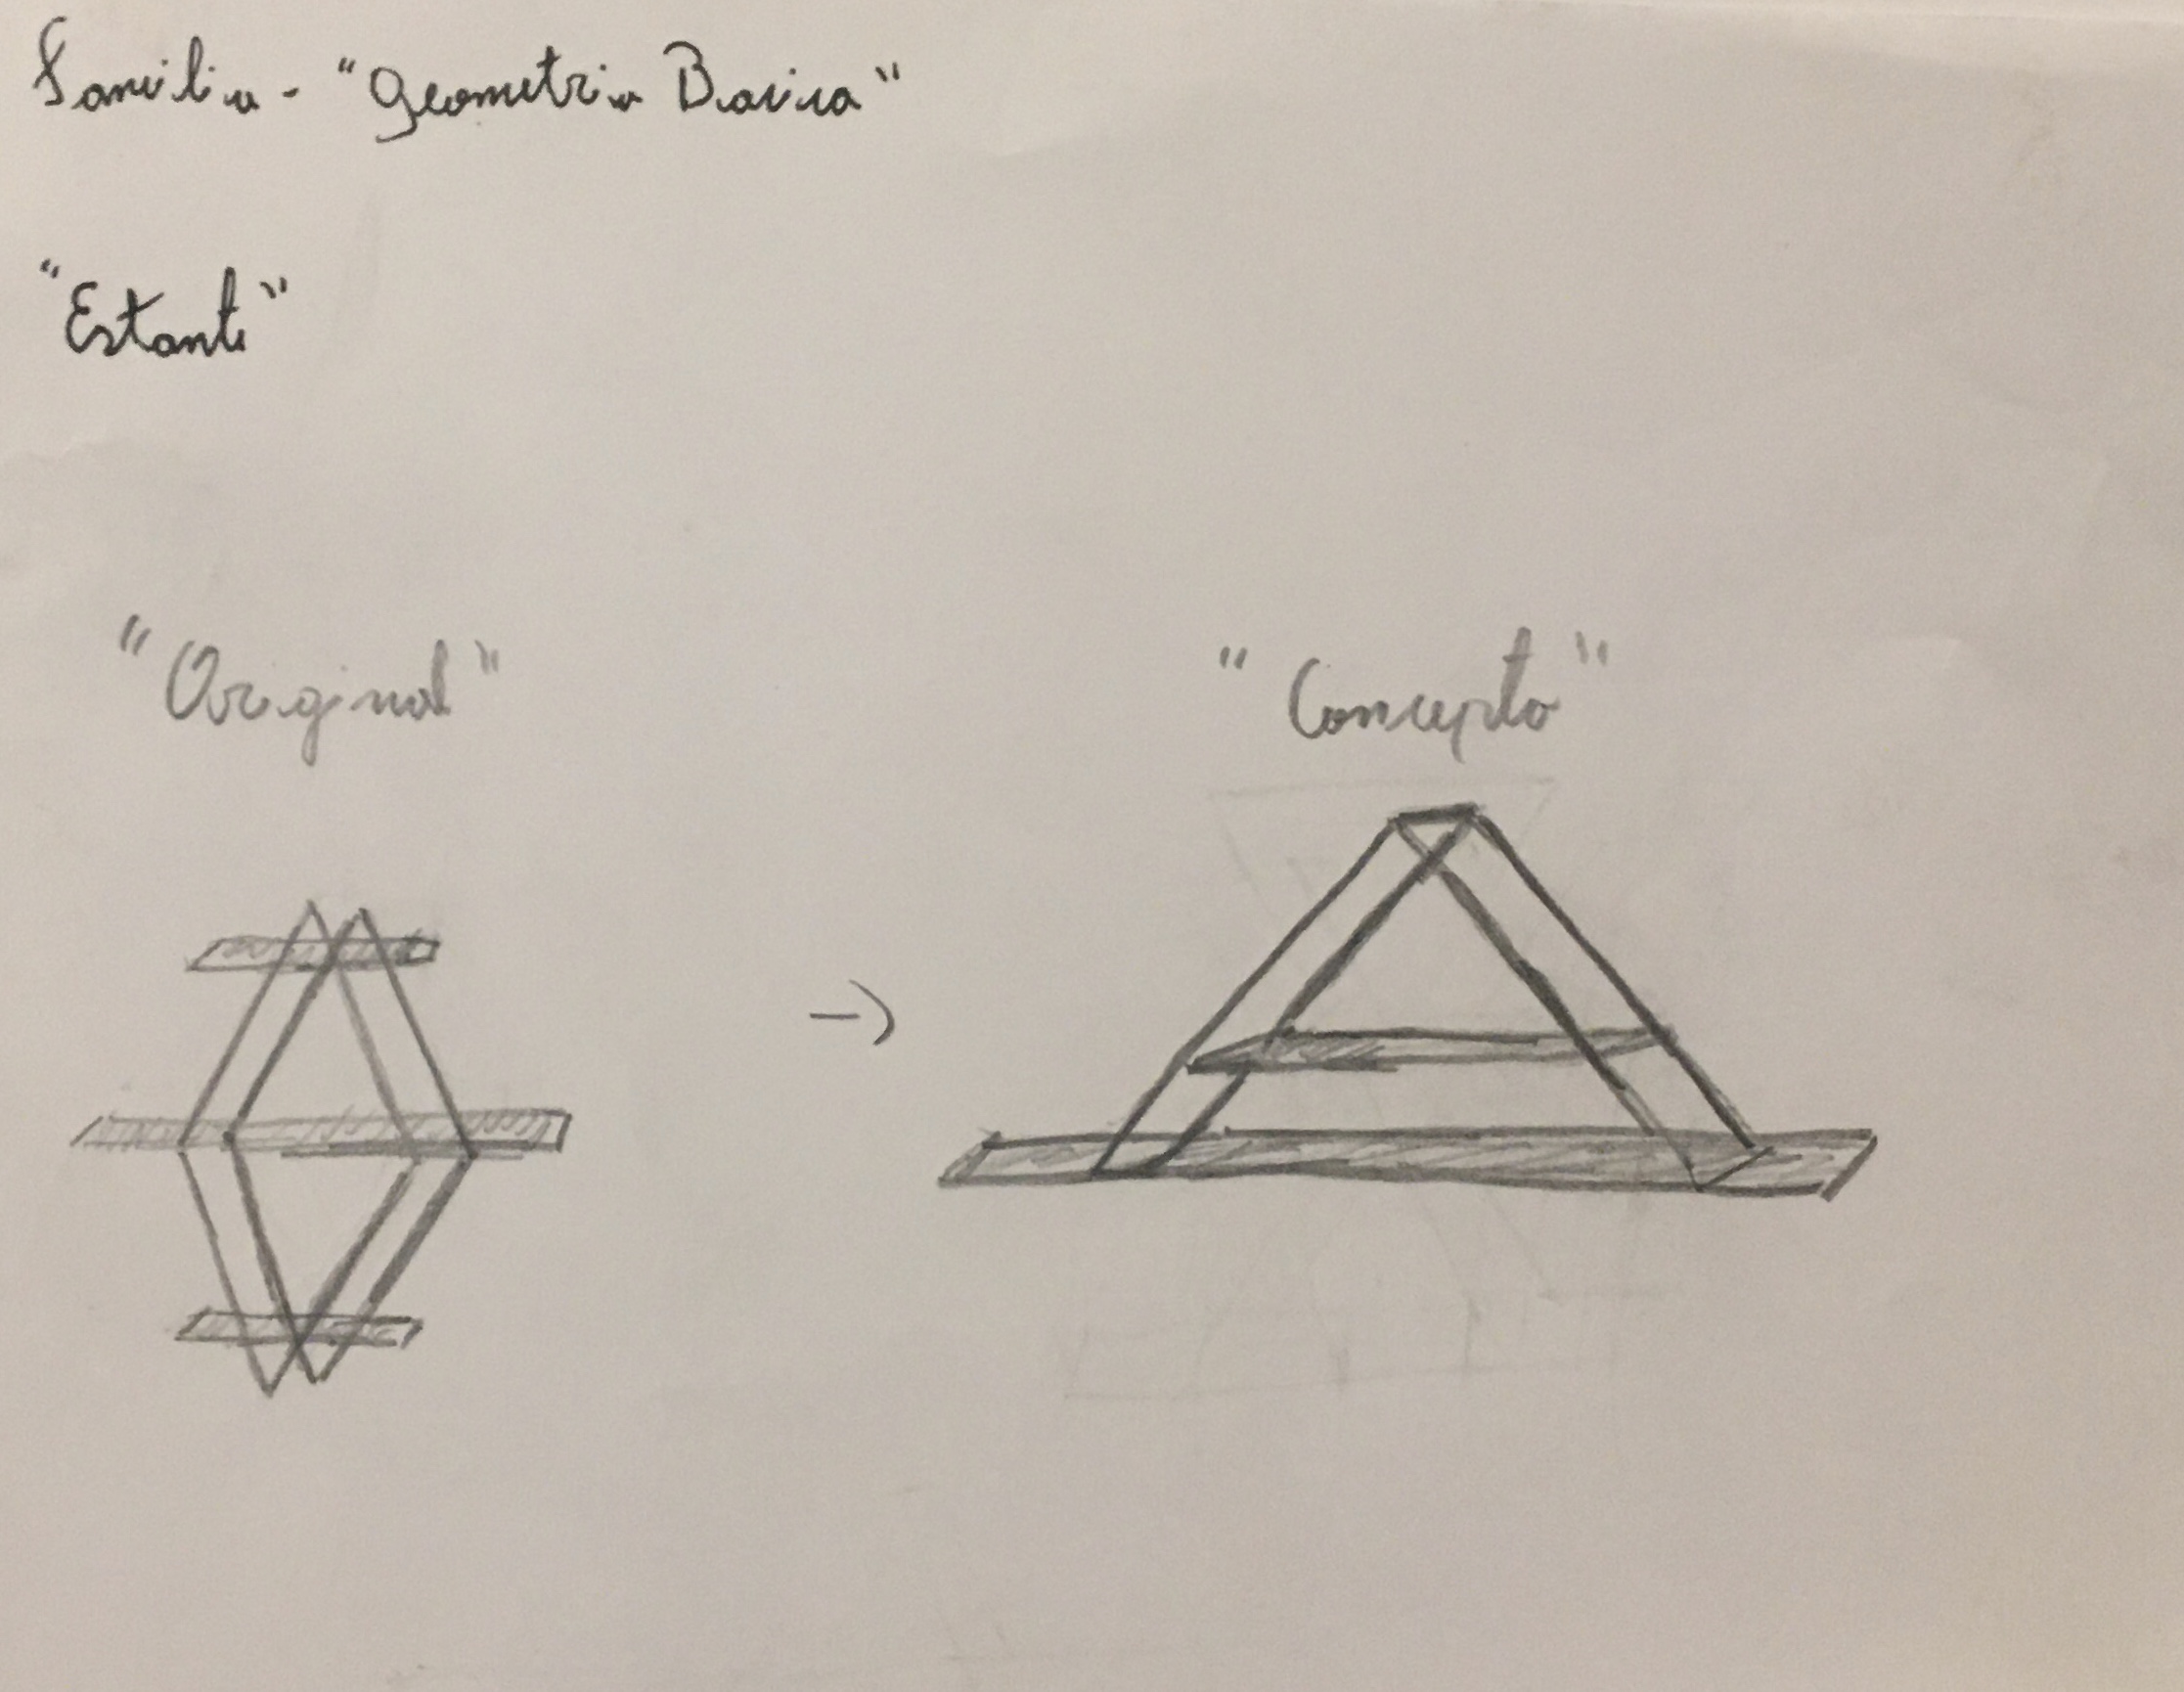 Familia - "Geometria Basica"
"Estante"
"Original"
"Concepto"